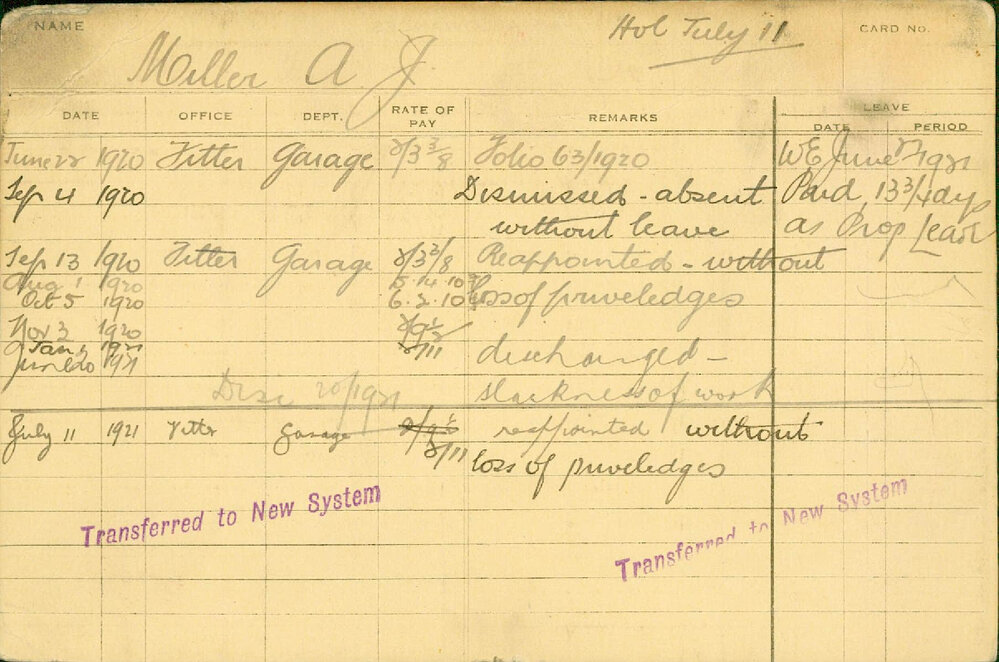 NAME Hol July 11 CARD NO.
Miller A J.
DATE OFFICE DEPT. RATE OF PAY REMARKS LEAVE
DATE PERIOD
June 22 1920 Fitter Garage 2/3 3/8 Folio 63/1920 WE June 1921
Sep 4 1920 Dismissed - absent Paid 13 3/4 dys
without leave as Prop Leave
Sep 13 1920 Fitter Garage 2/3 3/8 Reappointed - without
Aug 1 1920 5.14.10
Oct 5 1920 6.2.10 loss of priveledges
Nov 3 1920
Jan 1921 2/11 discharged -
June 20 1921
Disc 20/1921 slackness of work
July 11 1921 Fitter Garage 2/9 1/2 reappointed without
2/11 loss of priveledges
Transferred to New System
Transferred to New System